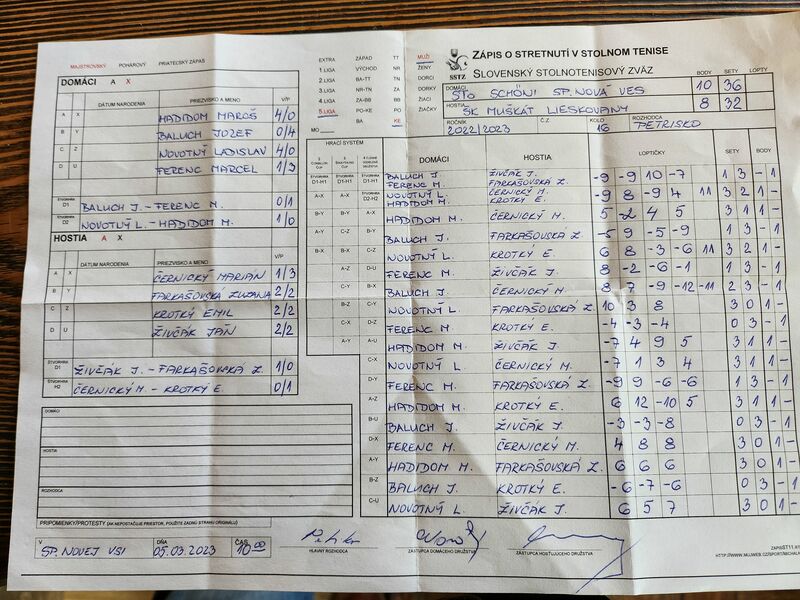 MAJSTROVSKÝ POHÁROVÝ PRIATEĽSKÝ ZÁPAS
EXTRA ZÁPAD MUŽI
1 LIGA VÝCHOD ŽENY
2 LIGA BA-TT TN DORCI
3 LIGA NR-TN ZA DORKY
4 LIGA ZA-BB BB ŽIACI
5 LIGA PO-KE PO ŽIAČKY
MO BA KE
SSTZ
ZÁPIS O STRETNUTÍ V STOLNOM TENISE
SLOVENSKÝ STOLNOTENISOVÝ ZVÄZ
BODY SETY LOPTY
DOMÁCI STO SCHÖNI SP. NOVÁ VES 10 36
HOSTIA ŠK MUŠKÁT LIESKOVANY 8 32
ROČNÍK 2022/2023 KOLO 16 ROZHODCA PETRISKO
DOMÁCI A X
DÁTUM NARODENIA PRIEZVISKO A MENO V/P
A X HADIDOM MAROŠ 4/0
B Y BALUCH JOZEF 0/4
C Z NOVOTNÝ LADISLAV 4/0
D U FERENC MARCEL 1/3
ŠTVORHRA D1 BALUCH J. - FERENC M. 0/1
ŠTVORHRA D2 NOVOTNÝ L. - HADIDOM M. 1/0
HOSTIA A X
DÁTUM NARODENIA PRIEZVISKO A MENO V/P
A X ČERNICKÝ MARIÁN 1/3
B Y FARKAŠOVSKÁ ZUZANA 2/2
C Z KROTKÝ EMIL 2/2
D U ŽIVČÁK JÁN 2/2
ŠTVORHRA D1 ŽIVČÁK J. - FARKAŠOVSKÁ Z. 1/0
ŠTVORHRA H2 ČERNICKÝ M - KROTKÝ E. 0/1
DOMÁCI
HOSTIA
ROZHODCA
HRACÍ SYSTÉM DOMÁCI HOSTIA LOPTIČKY SETY BODY
D1-H1 D1-H1 D1-H1 BALUCH J. FERENC M. ŽIVČÁK J. FARKAŠOVSKÁ Z. -9 -9 10 -7 1 3 - 1
A-X A-X D2-H2 NOVOTNÝ L. HADIDOM M. ČERNICKÝ M. KROTKÝ E. -9 8 -9 4 11 3 2 1 -
B-Y B-Y A-X HADIDOM M. ČERNICKÝ M. 5 -2 4 5 3 1 1 -
C-Z B-Y BALUCH J. FARKAŠOVSKÁ Z. -5 9 -5 -9 1 3 - 1
B-X B-X C-Z NOVOTNÝ L. KROTKÝ E. 6 8 -3 -6 11 3 2 1 -
A-Z D-U FERENC M. ŽIVČÁK J. 8 -2 -6 -1 1 3 - 1
C-Y B-X BALUCH J. ČERNICKÝ M. 8 7 -9 -12 -11 2 3 - 1
B-Z C-Y NOVOTNÝ L. FARKAŠOVSKÁ Z. 10 3 8 3 0 1 -
C-X D-Z FERENC M. KROTKÝ E. -4 -3 -4 0 3 - 1
A-Y A-U HADIDOM M. ŽIVČÁK J. -7 4 9 5 3 1 1 -
C-X NOVOTNÝ L. ČERNICKÝ M. -7 1 3 4 3 1 1 -
D-Y FERENC M. FARKAŠOVSKÁ Z. -9 9 -6 -6 1 3 - 1
A-Z HADIDOM M. KROTKÝ E. 6 12 -10 5 3 1 1 -
B-U BALUCH J. ŽIVČÁK J. -3 -3 -8 0 3 - 1
D-X FERENC M. ČERNICKÝ M. 4 8 8 3 0 1 -
A-Y HADIDOM M. FARKAŠOVSKÁ Z. 6 6 6 3 0 1 -
B-Z BALUCH J. KROTKÝ E. -6 -7 -6 0 3 - 1
C-U NOVOTNÝ L. ŽIVČÁK J. 6 5 7 3 0 1 -
PRIPOMIENKY/PROTESTY (AK NEPOSTAČUJE PRIESTOR, POUŽITE ZADNÚ STRANU ORIGINÁLU)
V SP. NOVEJ VSI DŇA 05.03.2023 ČAS 10:00
HLAVNÝ ROZHODCA ZÁSTUPCA DOMÁCEHO DRUŽSTVA ZÁSTUPCA HOSŤUJÚCEHO DRUŽSTVA